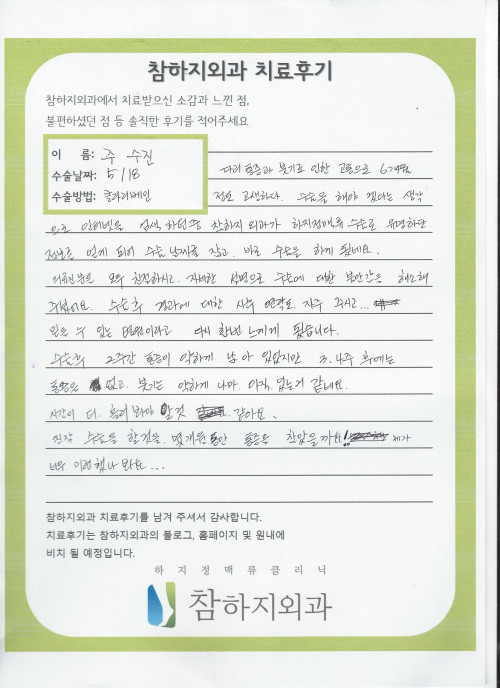 참하지외과 치료후기
참하지외과에서 치료받으신 소감과 느낀 점,
불편하셨던 점 등 솔직한 후기를 적어주세요
이 름: 주 수진
수술날짜: 5/18
수술방법: 클라리베인
다리 통증과 붓기로 인한 고통으로 6개월
정도 고생하다. 수술을 해야 겠다는 생각
으로 인터넷을 검색 하던중 참하지 외과가 하지정맥류 수술로 유명하단
정보를 얻게 되어 수술 날짜를 잡고. 바로 수술을 하게 됬네요.
의료진분들 모두 친절하시고. 자세한 설명으로 수술에 대한 불안감은 해소해
주셨어요. 수술후 경과에 대한 사후 연락도. 자주 주시고...
믿을 수 있는 병원이라고 다시 한번 느끼게 됬습니다.
수술후 2주간 통증이 약하게 남아 있었지만 3.4주 후에는
통증은 없고. 붓기는 약하게 나마. 아직. 있는거 같네요.
시간이 더. 흘러봐야 할것 같아요.
진작 수술을 할것을. 몇개월동안 통증을 참았을까요! 제가
너무 미련했나 봐요...
참하지외과 치료후기를 남겨 주셔서 감사합니다.
치료후기는 참하지외과의 블로그, 홈페이지 및 원내에
비치 될 예정입니다.
하지정맥류클리닉
참하지외과